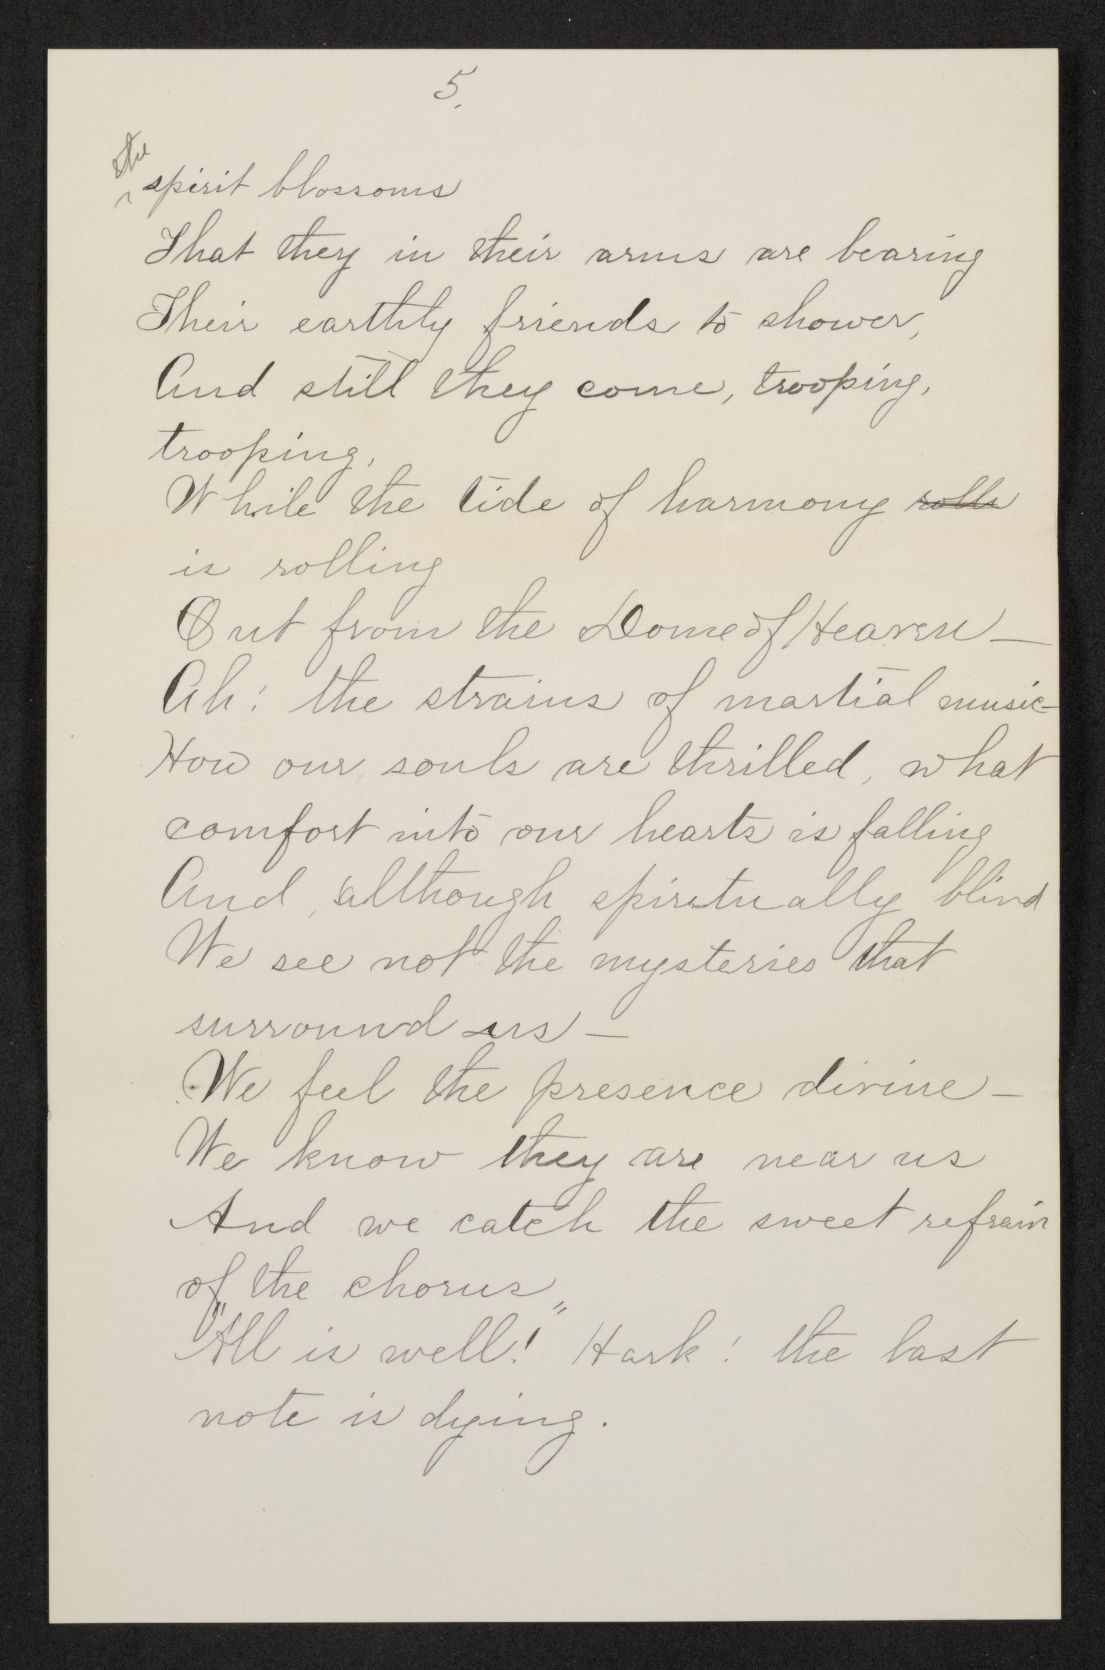 5.
the
spirit blossoms
That they in their arms are bearing
Their earthly friends to shower,
And still they come, trooping,
trooping,
While the tide of harmony rolls
is rolling
Out from the Dome of Heaven —
Ah! the strains of martial music —
How our souls are thrilled, what
comfort into our hearts is falling
And, although spiritually blind
We see not the mysteries that
surround us —
We feel the presence divine —
We know they are near us
And we catch the sweet refrain
of the chorus
"All is well!" Hark! the last
note is dying.